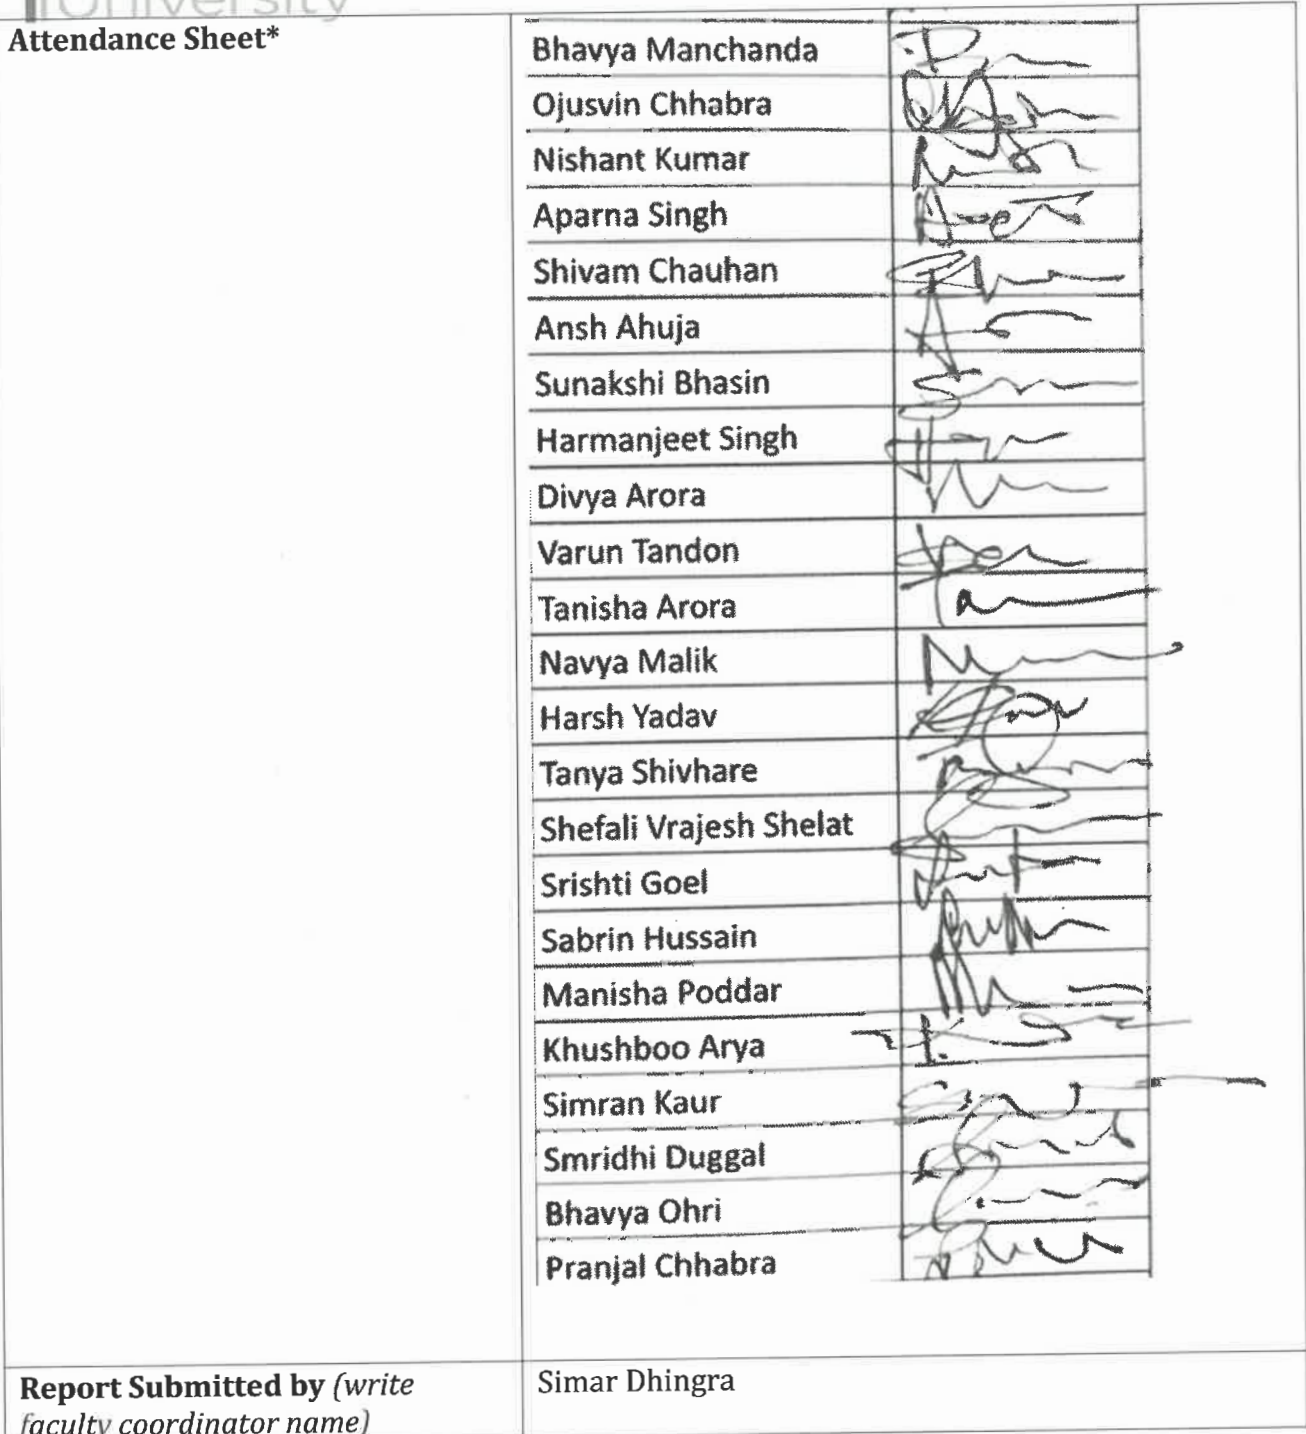 University
Attendance Sheet*
Bhavya Manchanda
Ojusvin Chhabra
Nishant Kumar
Aparna Singh
Shivam Chauhan
Ansh Ahuja
Sunakshi Bhasin
Harmanjeet Singh
Divya Arora
Varun Tandon
Tanisha Arora
Navya Malik
Harsh Yadav
Tanya Shivhare
Shefali Vrajesh Shelat
Srishti Goel
Sabrin Hussain
Manisha Poddar
Khushboo Arya
Simran Kaur
Smridhi Duggal
Bhavya Ohri
Pranjal Chhabra
Report Submitted by (write
faculty coordinator name)
Simar Dhingra